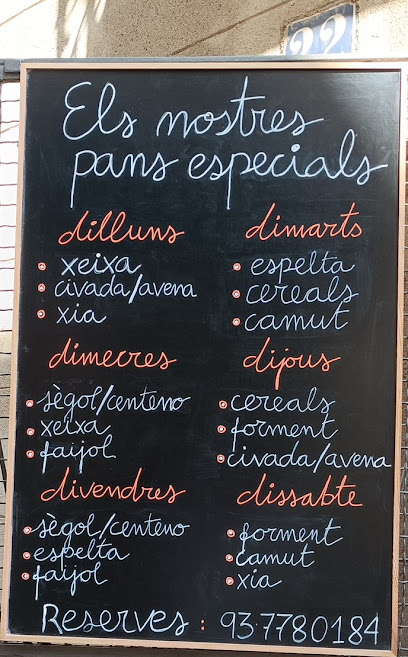 22
Els nostres
pans especials
dilluns
xeixa
civada/avena
xia
dimarts
espelta
cereals
camut
dimecres
sègol/centeno
xeixa
faijol
dijous
cereals
forment
civada/avena
divendres
sègol/centeno
espelta
faijol
dissabte
forment
camut
xia
Reserves: 93·7780184